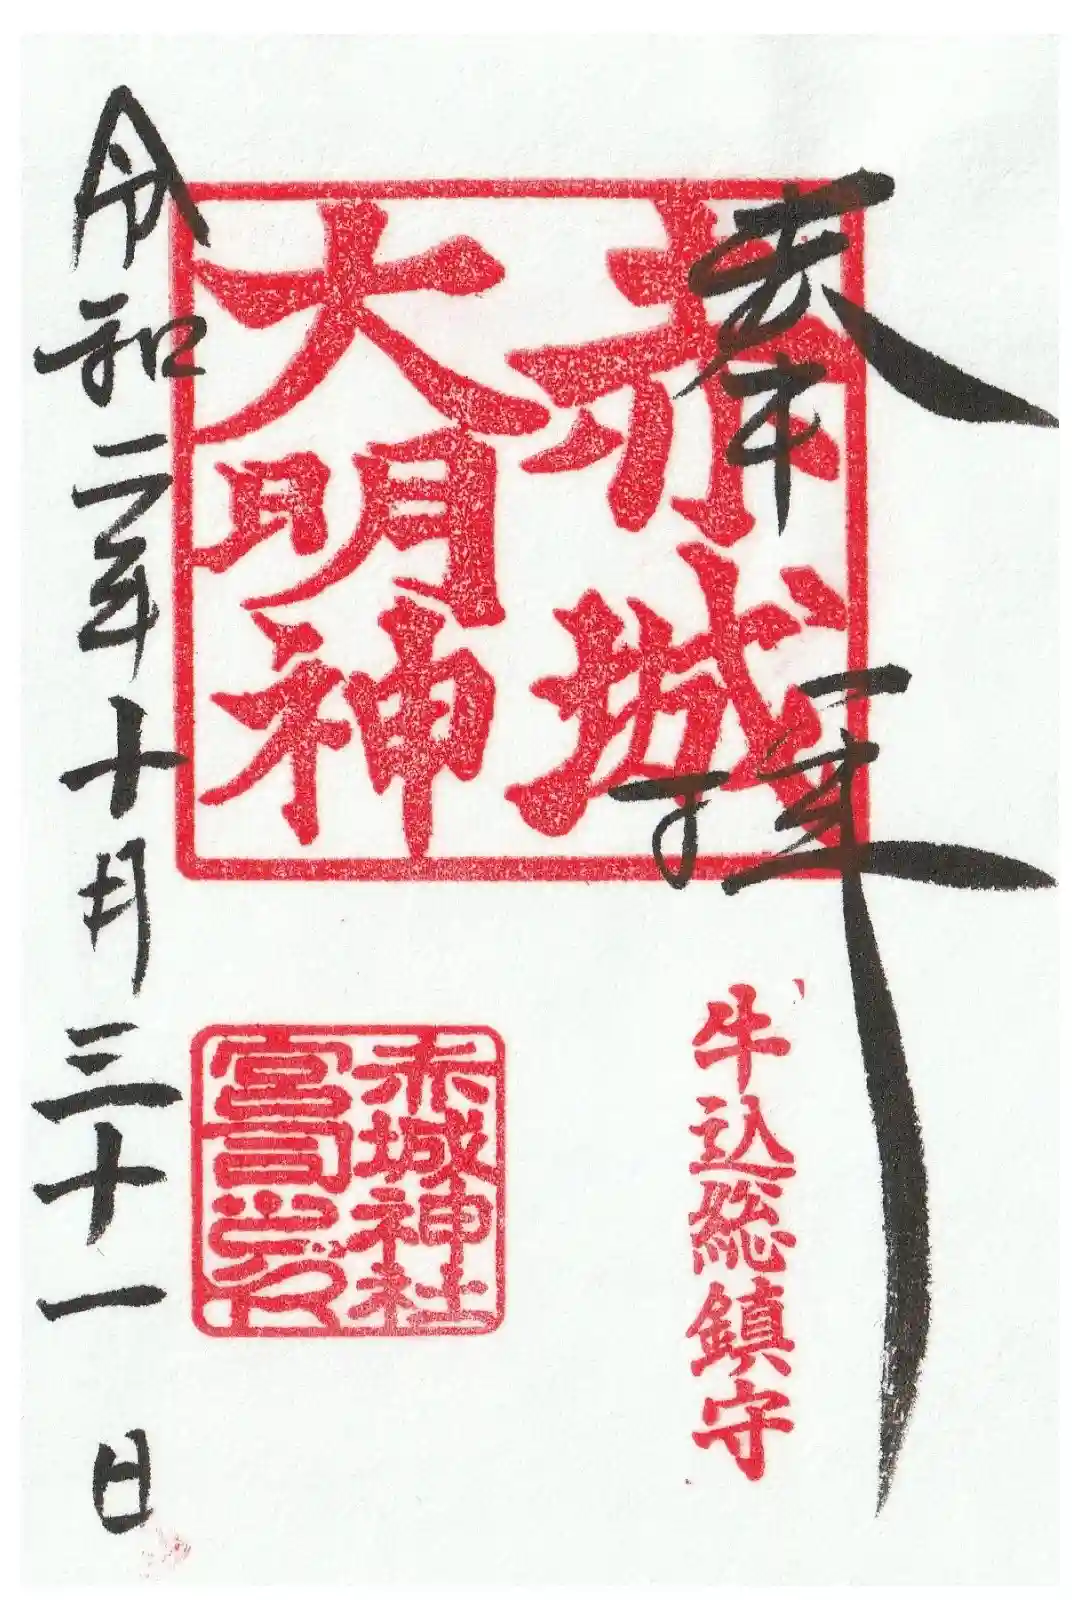 奉拝
赤城
大明神
牛込総鎮守
赤城神社
宮司之印
令和二年十月三十一日